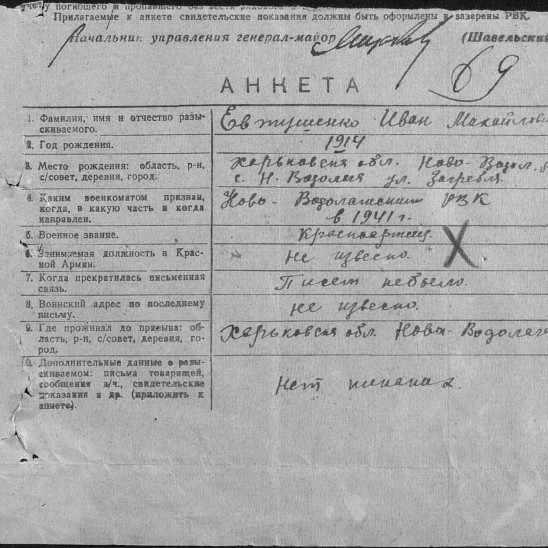 Прилагаемые к анкете свидетельские показания должны быть оформлены и заверены РВК.
Начальник управления генерал-майор (Шавельский
69
АНКЕТА
1. Фамилия, имя и отчество разыскиваемого. Евтушенко Иван Махайлов
2. Год рождения. 1914
3. Место рождения: область, р-н, Харьковская обл. Ново-Водол.
с/совет, деревня, город. с. Н-Водолага ул.
4. Каким военкоматом призван, Ново-Водолашским РВК
когда, в какую часть и когда в 1941 г.
направлен.
5. Военное звание. Красноармеец
6. Занимаемая должность в Крас- не извесно.
ной Армии.
7. Когда прекратилась письменная Писем небыло.
связь.
8. Воинский адрес по последнему не извесно.
письму.
9. Где проживал до призыва: об- Харьковская обл. Нова-Водолага
ласть, р-н, с/совет, деревня, го-
род.
10. Дополнительные данные о разы-
скиваемом: письма товарищей,
сообщения в/ч., свидетельские Нет
показания и др. (приложить к
анкете).